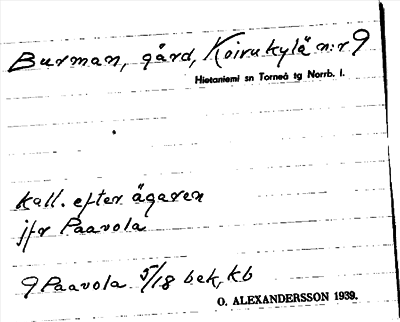 Burman, gård, Koirukylä n:r 9
Hietaniemi sn Torneå tg Norrb. l.
Kall. efter ägaren
jfr Paavola
9 Paavola 5/18 bek, kb
O. ALEXANDERSSON 1939.